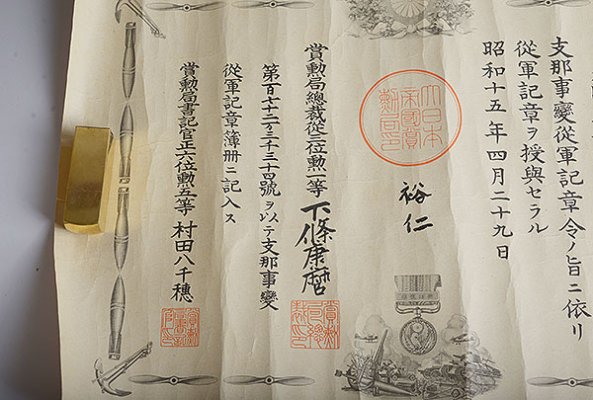 支那事變從軍記章令ノ旨ニ依リ
從軍記章ヲ授與セラル
昭和十五年四月二十九日
大日本
帝國賞
勲局印
裕仁
賞勲局總裁從三位勲一等 下條康麿
第百七十二万三千三十四號ヲ以テ支那事變
從軍記章簿冊ニ記入ス
賞勲局書記官正六位勲五等 村田八千穗